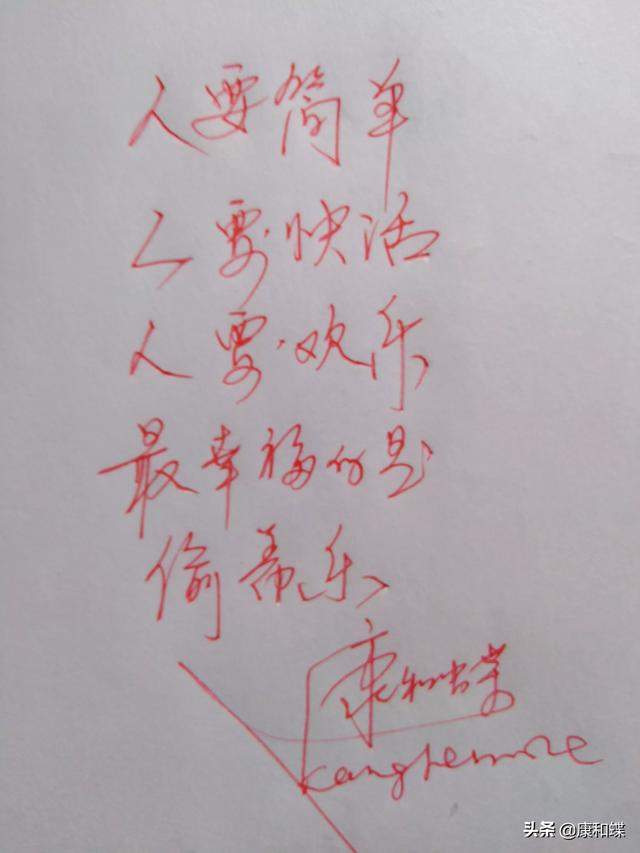 人要简单
人要快活
人要欢乐
最幸福的是
偷着乐
康和蝶
头条 @康和蝶